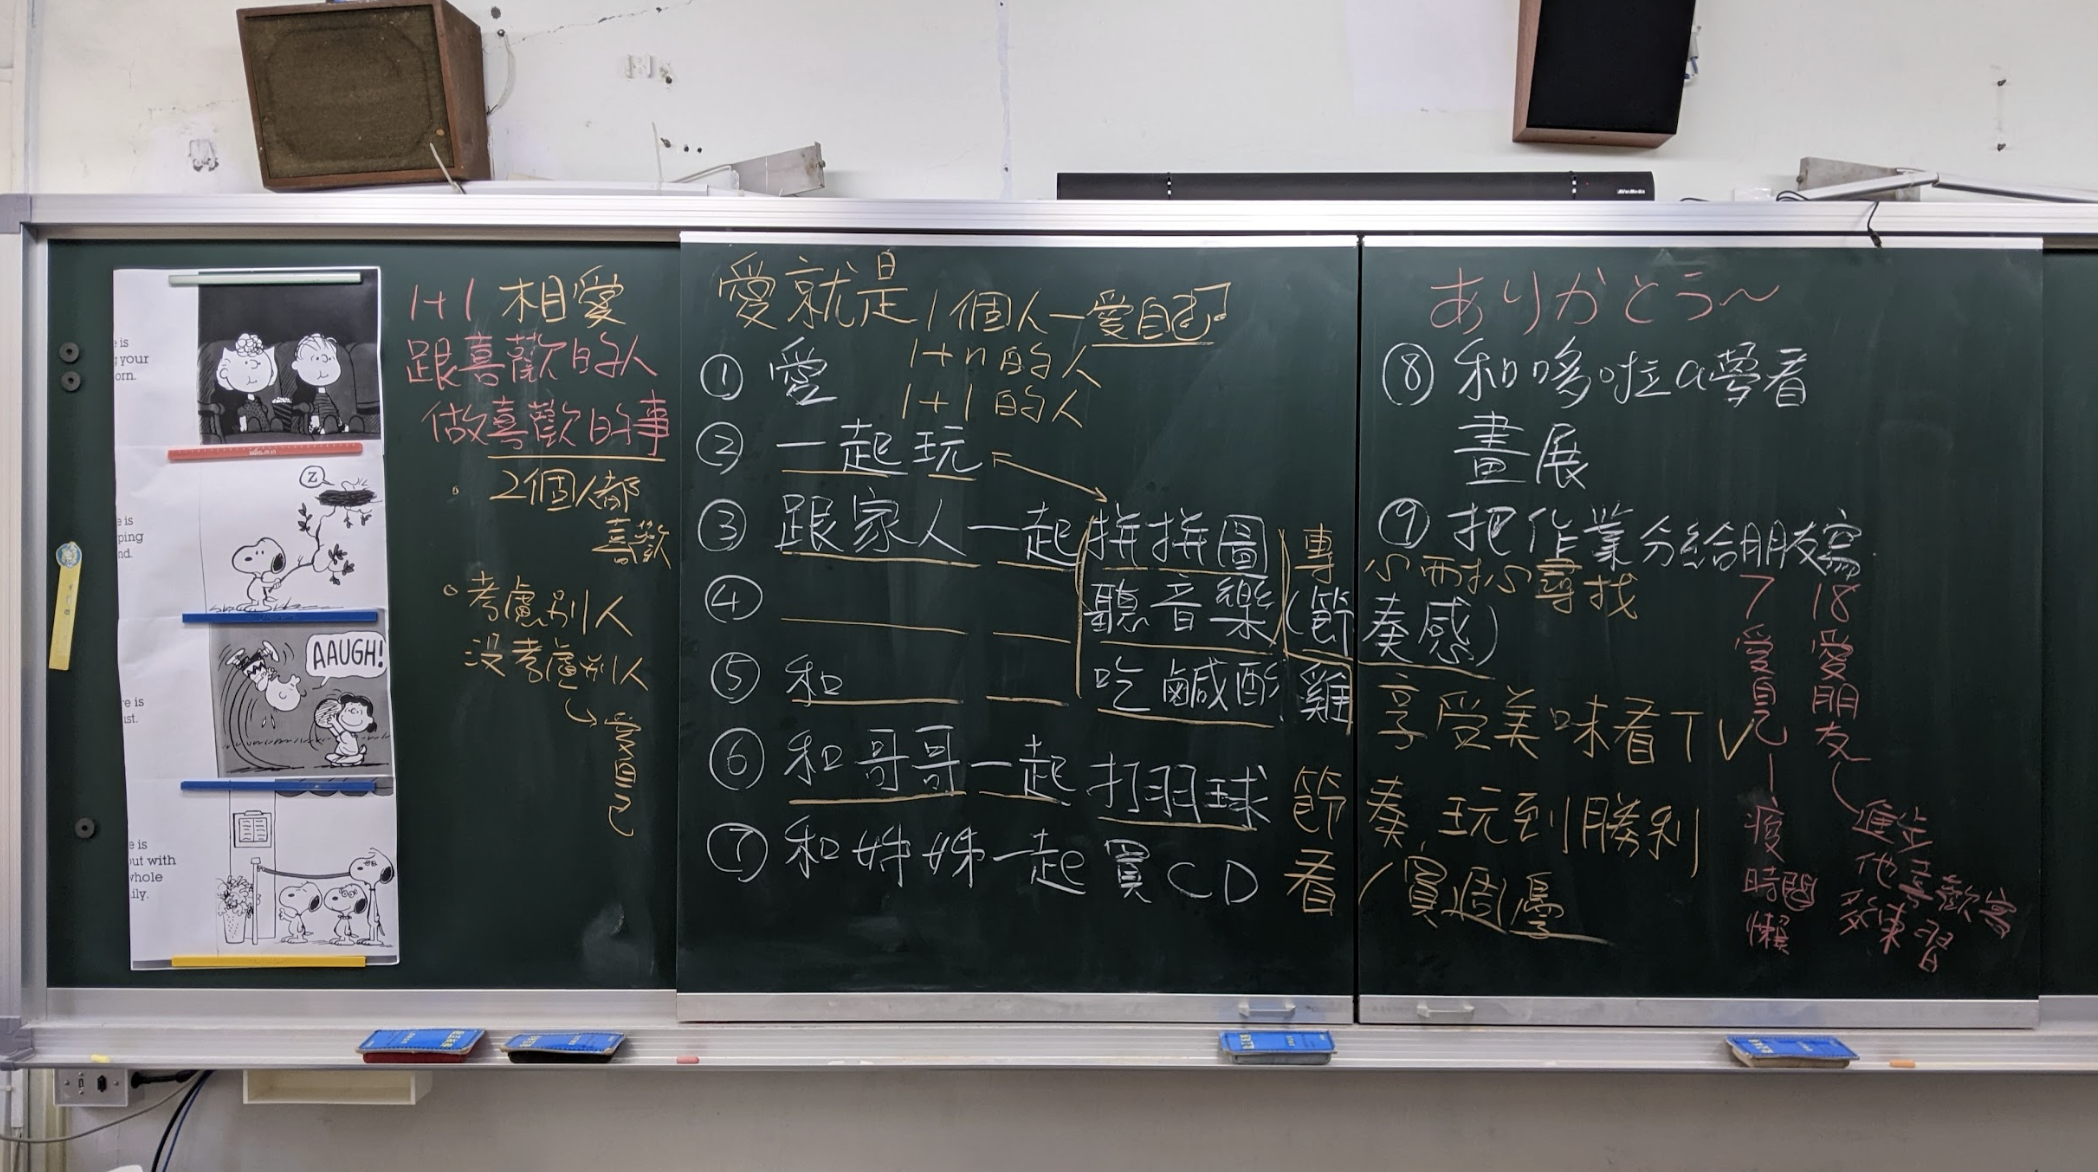 is
your
orn.
Z
e is
ping
nd.
AAUGH!
e is
ist.
e is
out with
whole
ily.
1+1 相愛
跟喜歡的人
做喜歡的事
2個人都
喜歡
考慮別人
沒考慮別人
愛自己
愛就是
1個人—愛自己
1+n的人
1+1的人
① 愛
② 一起玩
③ 跟家人一起拼拼圖 專心而找尋找
④ 聽音樂(節奏感)
⑤ 和 吃鹹酥雞 享受美味看TV
⑥ 和哥哥一起打羽球 節奏,玩到勝利
⑦ 和姊姊一起買CD 看/買周
ありがとう～
⑧ 和哆啦a夢看
畫展
⑨ 把作業分給朋友寫
7
愛自己
時間
懶
18
愛朋友
進步
他喜歡寫
多練習